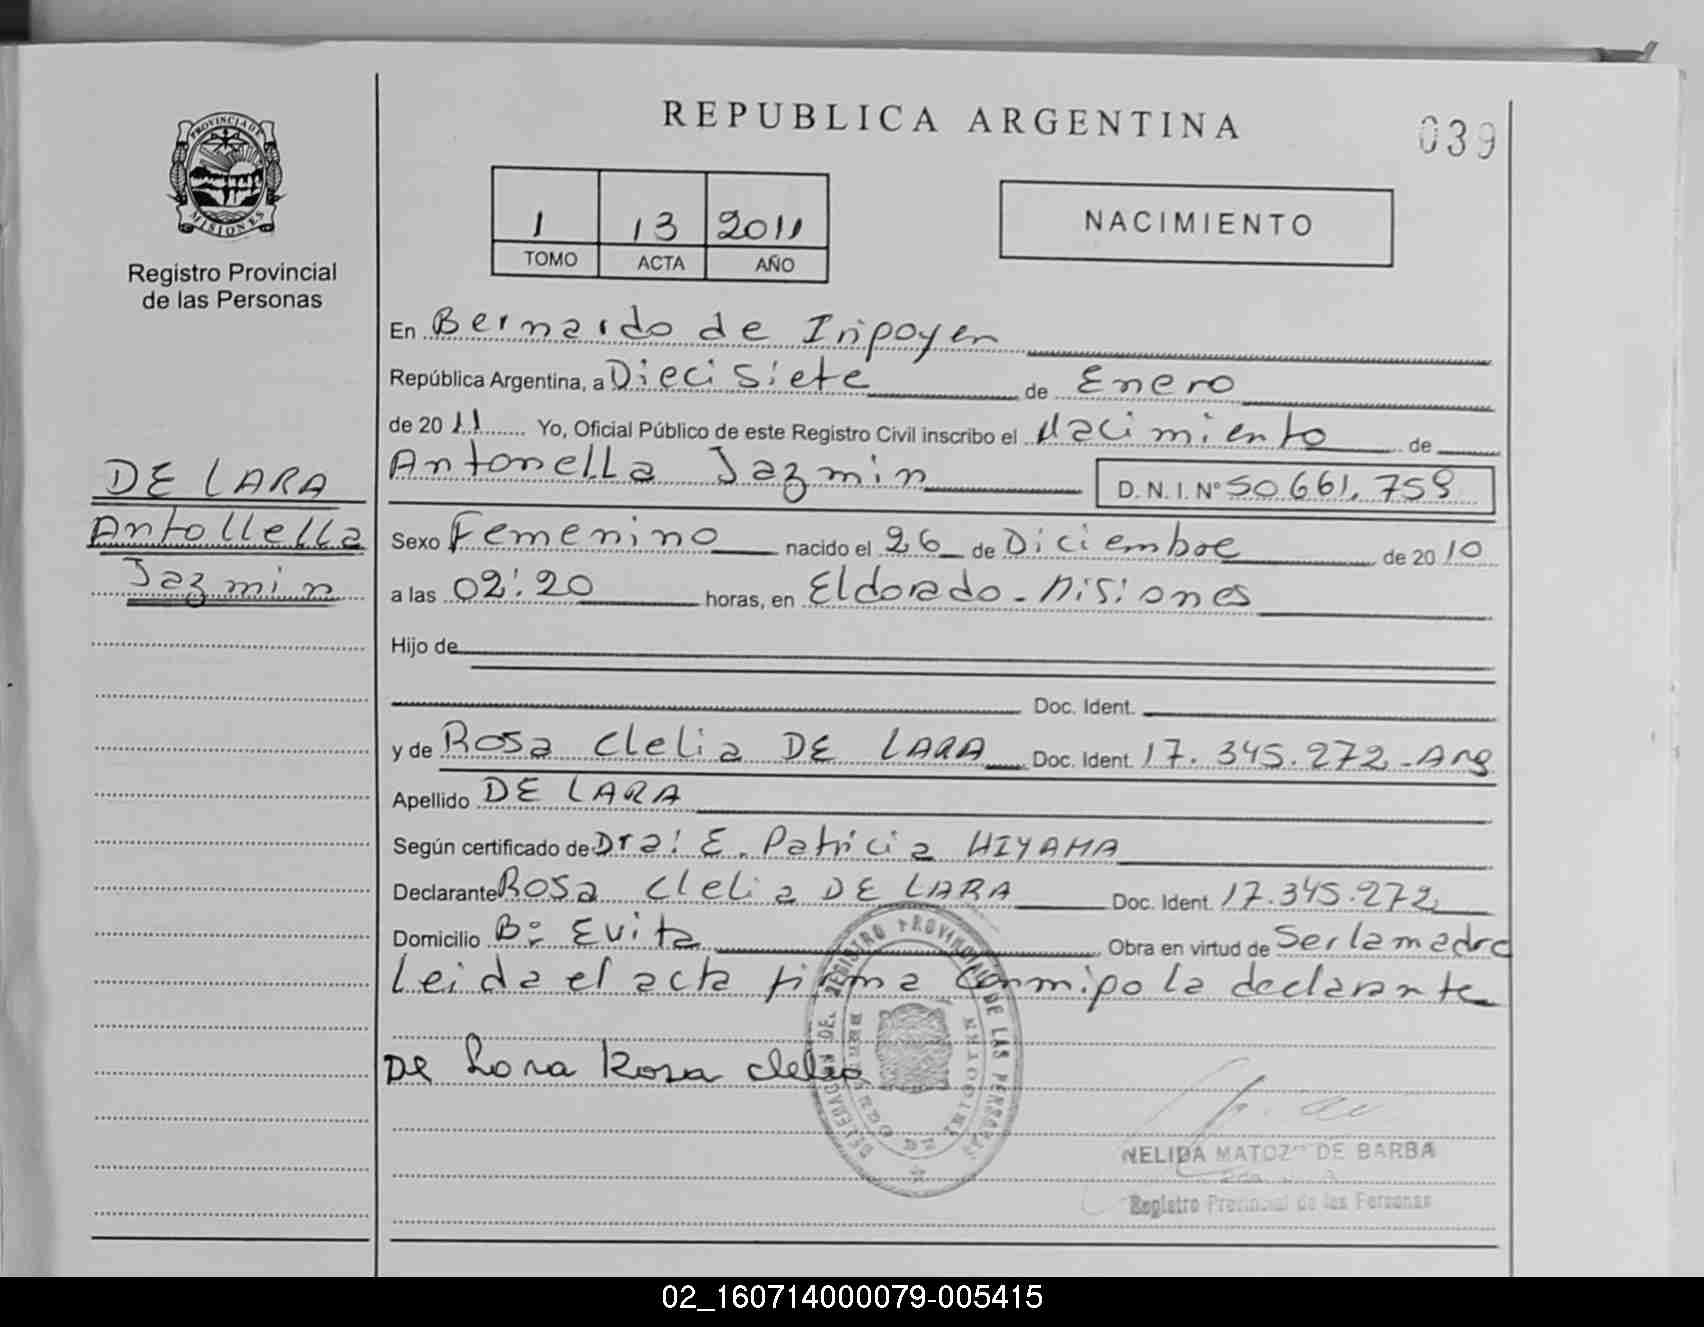 REPUBLICA ARGENTINA
039
PROVINCIA DE
MISIONES
Registro Provincial
de las Personas
1 13 2011
TOMO ACTA AÑO
NACIMIENTO
En Bernardo de Iripoyen
República Argentina, a Diecisiete de Enero
de 2011 Yo, Oficial Público de este Registro Civil inscribo el Nacimiento de
Antonella Jazmin D.N.I. Nº 50.661.759
DE LARA
Antollella
Jazmin
Sexo Femenino nacido el 26 de Diciembre de 2010
a las 02:20 horas, en Eldorado - Misiones
Hijo de
Doc. Ident.
y de Rosa Clelia DE LARA Doc. Ident. 17.345.272 - Arg
Apellido DE LARA
Según certificado de Dra: E. Patricia HIYAMA
Declarante Rosa Clelia DE LARA Doc. Ident. 17.345.272
Domicilio Bº Evita Obra en virtud de Ser la madre
Leida el acta firma conmigo la declarante
De Lara Rosa Clelia
DELEGACION DEL REGISTRO PROVINCIAL DE LAS PERSONAS
NELIDA MATOZO DE BARBA
Registro Provincial de las Personas
02_160714000079-005415